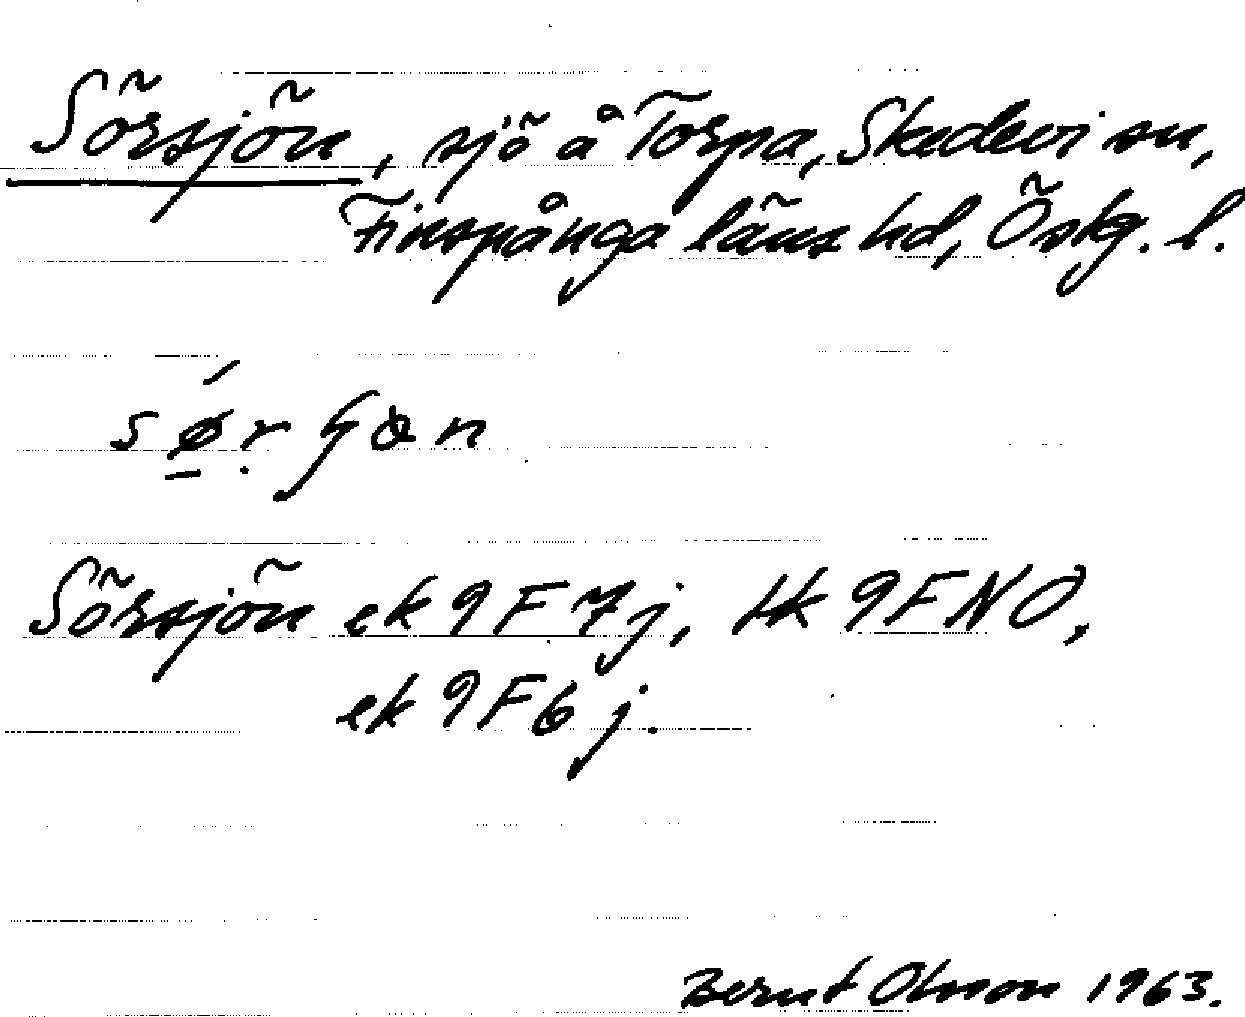 Sörsjön, sjö å Torpa, Skedevi sn,
Finspånga läns hd, Östg. l.
Sörsjön ek 9F7j, Hk 9FNO,
ek 9F6j.
Bernt Olsson 1963.